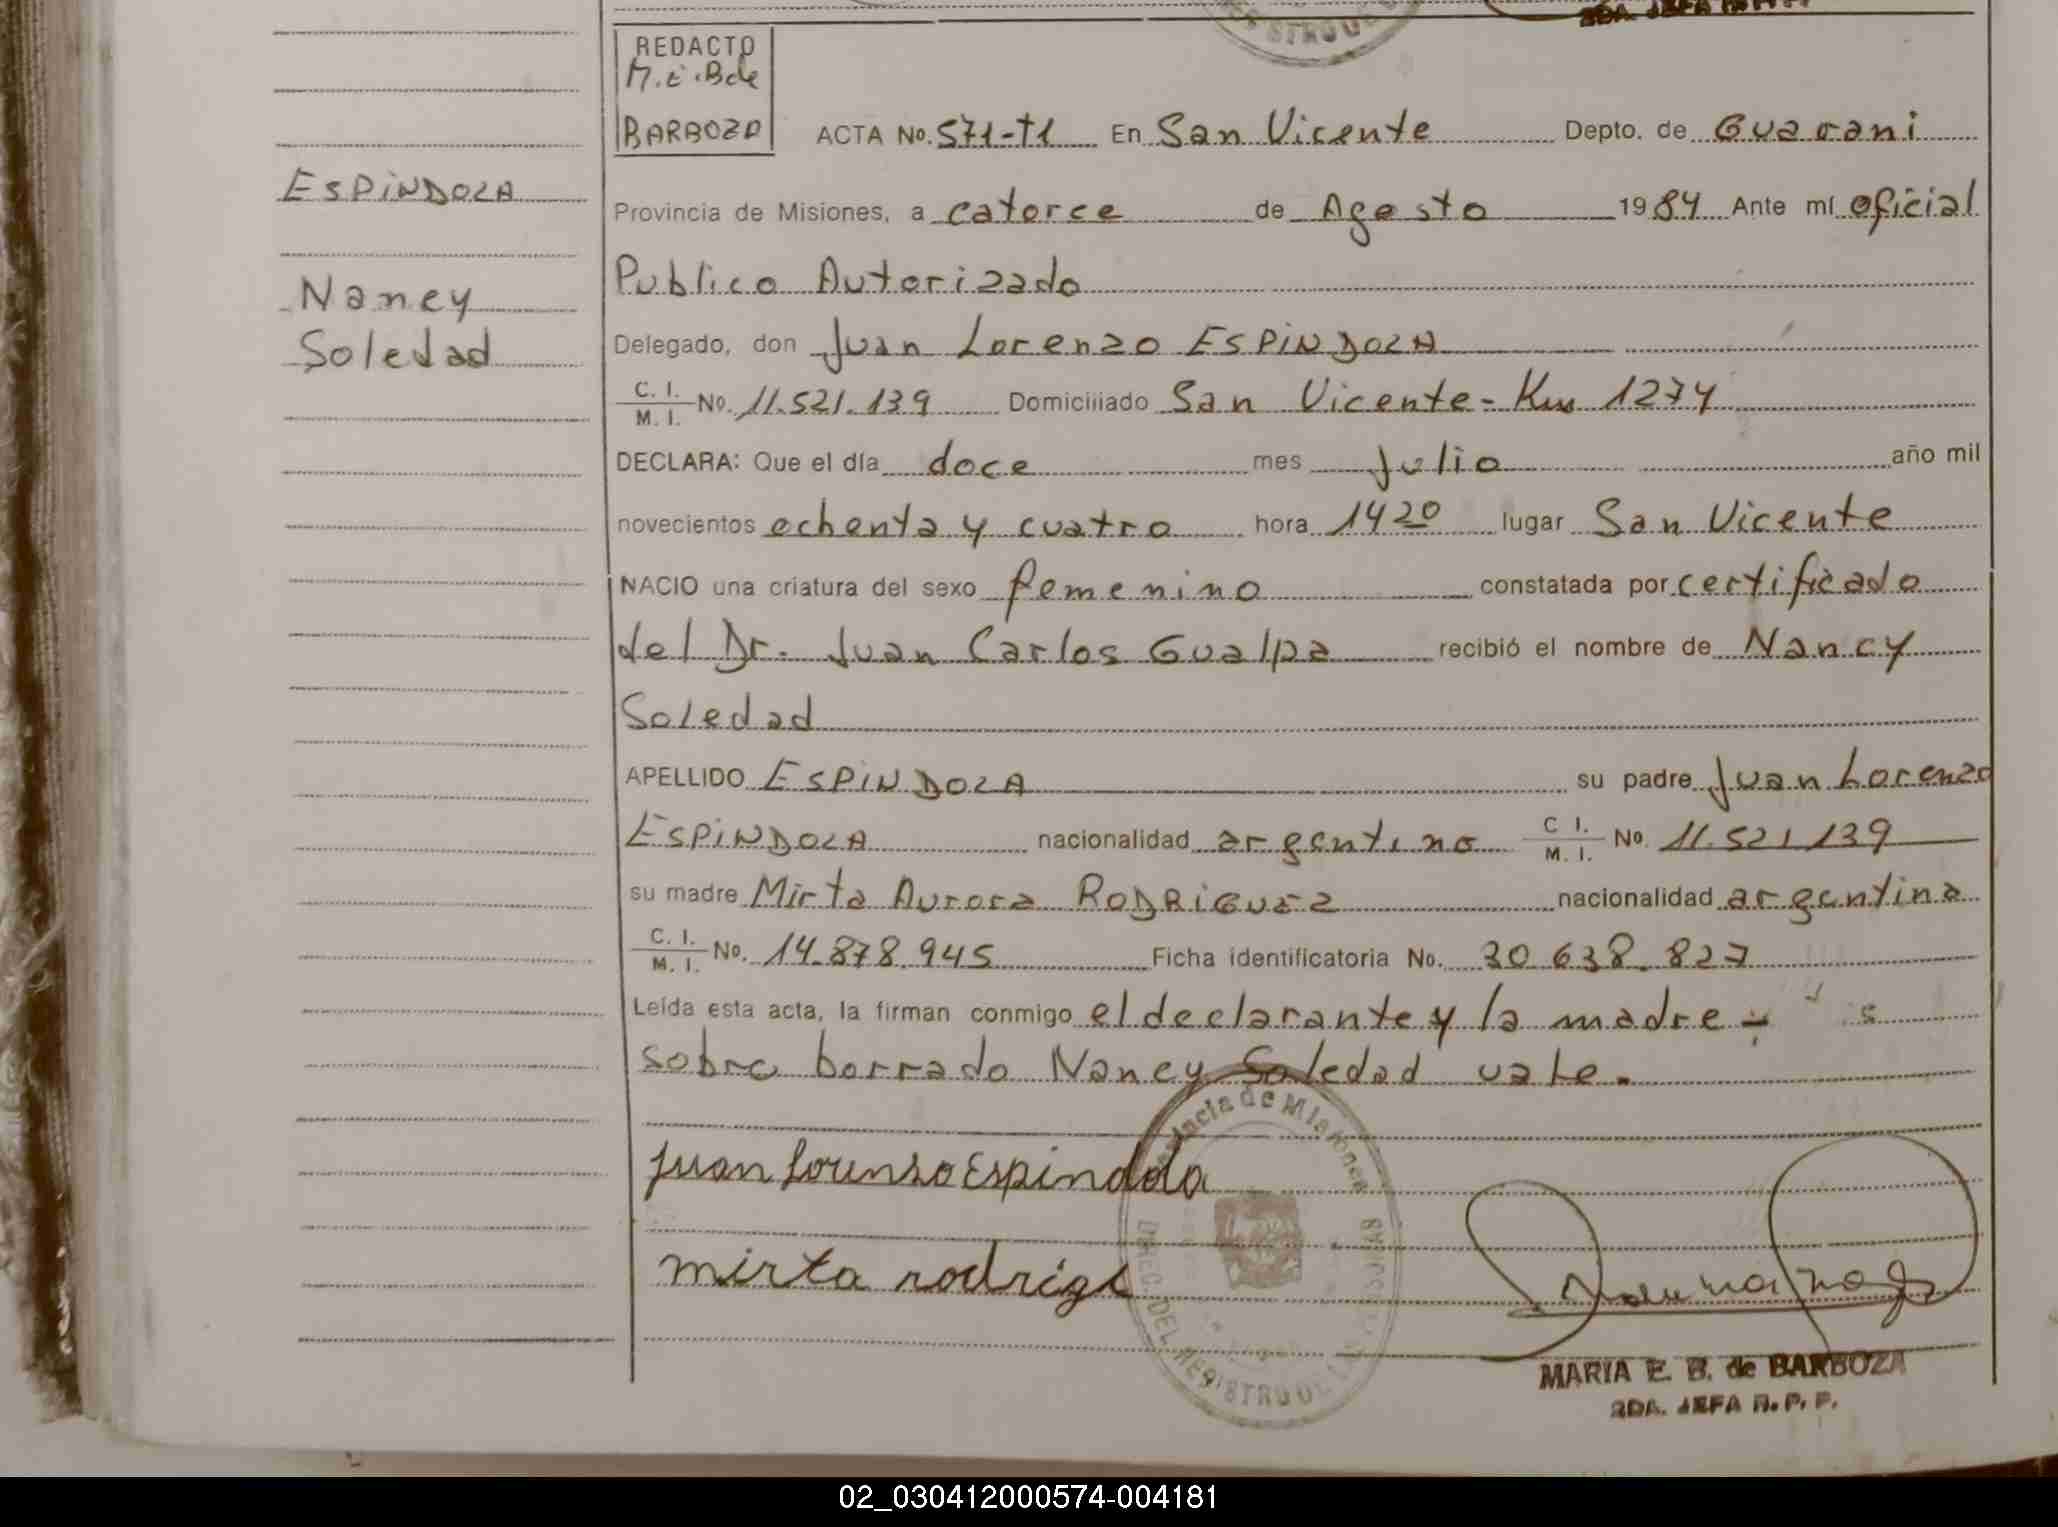 REDACTO
M.E.Bde
BARBOZA
ACTA No. 571-T1 En San Vicente Depto. de Guarani
ESPINDOLA
Provincia de Misiones, a catorce de Agosto 1984 Ante mí oficial
Publico Autorizado
Nancy
Soledad
Delegado, don Juan Lorenzo ESPINDOLA
C. I.
M. I. No. 11.521.139 Domiciliado San Vicente - Km 1274
DECLARA: Que el día doce mes Julio año mil
novecientos ochenta y cuatro hora 1420 lugar San Vicente
NACIO una criatura del sexo femenino constatada por certificado
del Dr. Juan Carlos Gualpa recibió el nombre de Nancy
Soledad
APELLIDO ESPINDOLA su padre Juan Lorenzo
ESPINDOLA nacionalidad argentino C I. M. I. No. 11.521.139
su madre Mirta Aurora RODRIGUEZ nacionalidad argentina
C. I.
M. I. No. 14.878.945 Ficha identificatoria No. 30 638.827
Leída esta acta, la firman conmigo el declarante y la madre -
sobre borrado Nancy Soledad vale.
Juan Lorenso Espindola
mirta rodrige
Provincia de Misiones
DIREC. DEL REGISTRO DE
MARIA E. B. de BARBOZA
2DA. JEFA R. P. P.
02_030412000574-004181